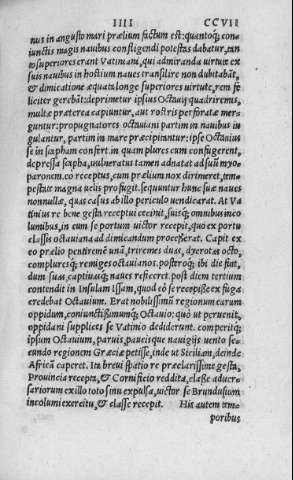 IIII CCVII
nus in angusto mari prælium factum est: quantoq; con
iunctis magis nauibus confligendi potestas dabatur, tan
to superiores erant Vatiniani, qui admiranda uirtute ex
suis nauibus in hostium naues transilire non dubitabãt,
& dimicatione æquata longe superiores uirtute, rem fe
liciter gerebãt: deprimitur ipsius Octauij quadriremis,
multæ præterea capiuntur, aut rostris perforatæ mer
guntur: propugnatores octauiani partim in nauibus iu
gulantur, partim in mare præcipitantur: ipse Octauius
se in scapham confert. in quam plures cum confugerent,
depressa scapha, uulneratus tamen adnatat ad suũ myo
paronem. eo receptus, cum prælium nox dirimeret, tem
pestate magna uelis profugit. sequuntur hunc suæ naues
nonnullæ, quas casus ab illo periculo uendicarat. At Va
tinius re bene gesta receptui cecinit, suisq; omnibus inco
lumibus, in eum se portum uictor recepit, quo ex portu
classis octauiana ad dimicandum processerat. Capit ex
eo prælio penterem̃ unã, triremes duas, dycrotas octo,
compluresq; remiges octauianos. postroq; ibi die fini,
dum suas, captiuasq; naues reficeret. post diem tertium
contendit in Insulam Issam, quod eò se recepisse ex fuga
credebat Octauium. Erat nobilissimũ regionum earum
oppidum, coniunctissimumq; Octauio: quò ut peruenit,
oppidani supplices se Vatinio dediderunt. comperitq;
ipsum Octauium, paruis, paucisque nauigijs uento se-
cundo regionem Græciæ petisse, inde ut Siciliam, deinde
Africã caperet. Ita breui spatio re præclarissime gesta,
Prouincia recepta, & Cornificio reddita, classe aduer-
sariorum ex illo toto sinu expulsa, uictor se Brundusium
incolumi exercitu, & classe recepit. His autem tem-
poribus